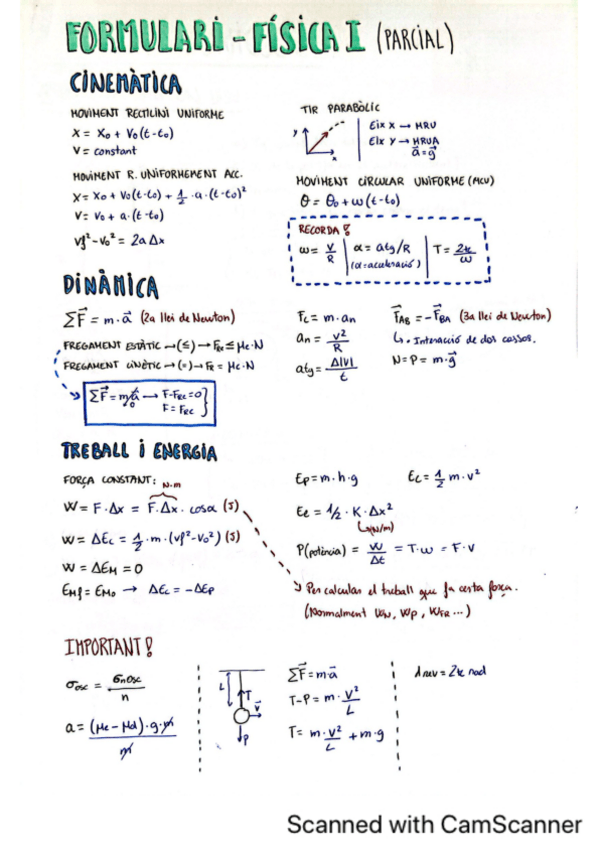 FORMULARI - FÍSICA I (PARCIAL)
CINEMÀTICA
MOVIMENT RECTILINI UNIFORME
x = x₀ + v₀(t-t₀)
v = constant
MOVIMENT R. UNIFORMEMENT ACC.
x = x₀ + v₀(t-t₀) + 1/2 · a · (t-t₀)²
v = v₀ + a · (t-t₀)
vf² - v₀² = 2aΔx
TIR PARABÒLIC
y
x
Eix x → MRU
Eix y → MRUA
a⃗ = g⃗
MOVIMENT CIRCULAR UNIFORME (MCU)
θ = θ₀ + ω(t-t₀)
RECORDA!
ω = v/R | α = atg/R | T = 2π/ω
(α = acceleració)
DINÀMICA
ΣF⃗ = m · a⃗ (2a llei de Newton)
FREGAMENT ESTÀTIC → (≤) → FRE ≤ μe · N
FREGAMENT CINÈTIC → (=) → FR = μc · N
ΣF⃗ = ma⃗ → F - FRC = 0
0
F = FRC
Fc = m · an
an = v²/R
atg = Δ|v|/t
F⃗AB = -F⃗BA (3a llei de Newton)
↳ Interacció de dos cossos.
N = P = m · g⃗
TREBALL i ENERGIA
FORÇA CONSTANT:
N·m
W = F · Δx = F · Δx · cosα (J)
W = ΔEc = 1/2 · m · (vf² - v₀²) (J)
W = ΔEM = 0
EMf = EM₀ → ΔEc = -ΔEp
Ep = m · h · g
Ec = 1/2 m · v²
Ee = 1/2 · K · Δx²
↳ (N/m)
P(potència) = W/Δt = T · ω = F · v
→ Per calcular el treball que fa certa força.
(Normalment WN, WP, WFR ...)
IMPORTANT!
σosc = σnosc/n
a = (μe - μd) · g · m/m
L
T
v⃗
P
ΣF⃗ = m · a⃗
T - P = m · v²/L
T = m · v²/L + m · g
1 rev = 2π rad
Scanned with CamScanner